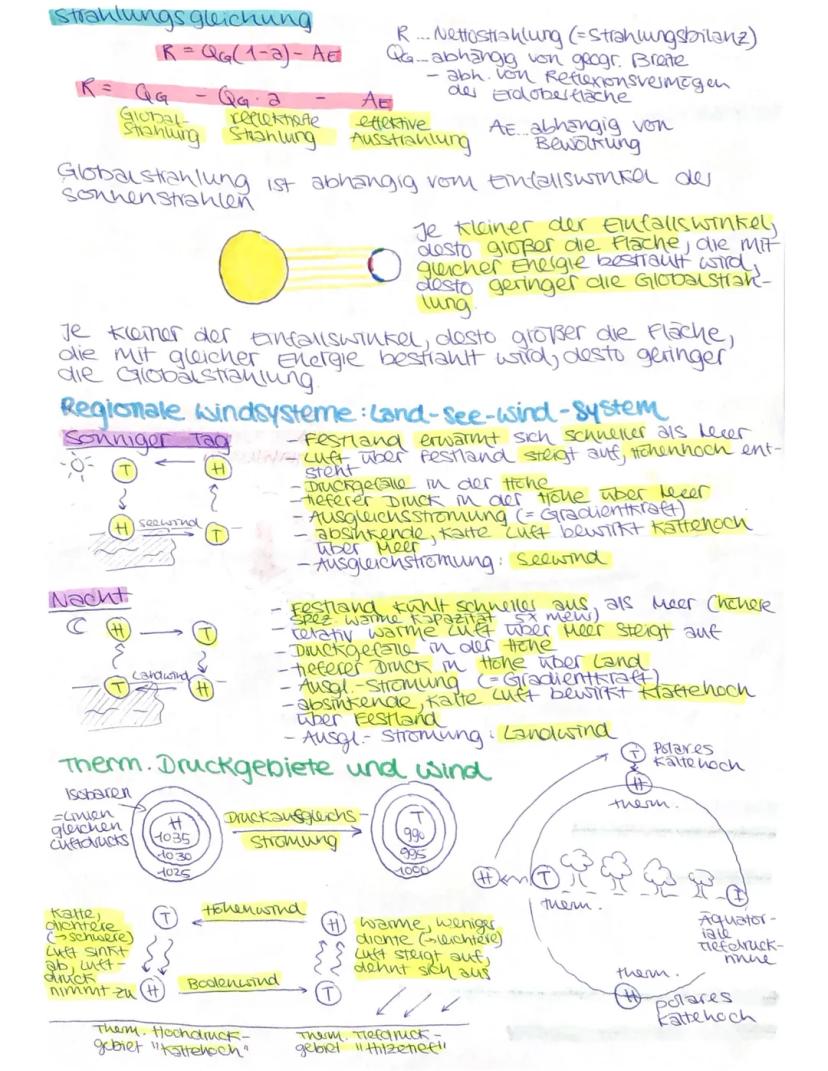 Strahlungsgleichung
R = QG(1-a) - AE
R = QG - QG·a - AE
Global-
strahlung
reflektierte
Strahlung
effektive
Ausstrahlung
R ... Nettostrahlung (= Strahlungsbilanz)
QG... abhängig von geogr. Breite
- abh. von Reflexionsvermögen
der Erdoberfläche
AE... abhängig von
Bewölkung
Globalstrahlung ist abhängig vom Einfallswinkel der
Sonnenstrahlen
Je kleiner der Einfallswinkel,
desto größer die Fläche, die mit
gleicher Energie bestrahlt wird,
desto geringer die Globalstrah-
lung.
Je kleiner der Einfallswinkel, desto größer die Fläche,
die mit gleicher Energie bestrahlt wird, desto geringer
die Globalstrahlung
Regionale Windsysteme: Land-See-Wind-System
Sonniger Tag
T ← H
H Seewind T
- Festland erwärmt sich schneller als Meer
- Luft über Festland steigt auf, Höhenhoch ent-
steht
- Druckgefälle in der Höhe
- tieferer Druck in der Höhe über Meer
- Ausgleichsströmung (= Gradientkraft)
- absinkende, kalte Luft bewirkt Kältehoch
über Meer
- Ausgleichströmung: Seewind
Nacht
H → T
T Landwind H
- Festland kühlt schneller aus, als Meer (höhere
spez. Wärme Kapazität 5x mehr)
- relativ warme Luft über Meer steigt auf
- Druckgefälle in der Höhe
- tieferer Druck in Höhe über Land
- Ausgl.-Strömung (= Gradientkraft)
- absinkende, kalte Luft bewirkt Klätehoch
über Festland
- Ausgl.- Strömung: Landwind
Therm. Druckgebiete und Wind
Isobaren
=Linien
gleichen
Luftdrucks
H
1035
1030
1025
Druckausgleichs-
strömung
T
990
995
1000
T
Polares
Kältehoch
H
therm.
H
T
therm.
T
Äquator-
iale
Tiefdruck-
rinne
therm.
H
polares
Kältehoch
Kalte,
dichtere
(→schwere)
Luft sinkt
ab, Luft-
druck
nimmt zu
T
Höhenwind
H
H
Bodenwind
T
warme, weniger
dichte (→leichtere)
Luft steigt auf,
dehnt sich aus
Therm. Hochdruck-
gebiet "Kältehoch"
Therm. Tiefdruck-
gebiet "Hitzetief"